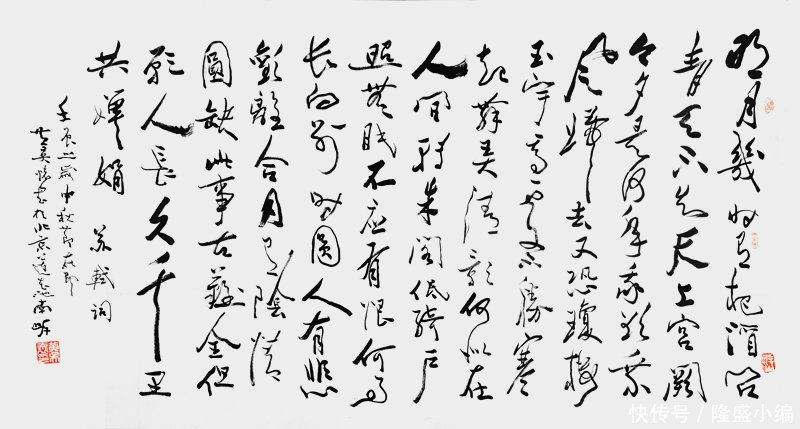 明月幾时有把酒问
青天不知天上宫闕
今夕是何年我欲乘
风歸去又恐瓊楼
玉宇高处不勝寒
起舞弄清影何似在
人间转朱阁低绮户
照無眠不应有恨何事
长向别时圆人有悲
歡離合月有陰晴
圓缺此事古難全但
願人長久千里
共嬋娟 苏軾词
壬辰之歲中秋節在即
书於北京
快传号 / 隆盛小编